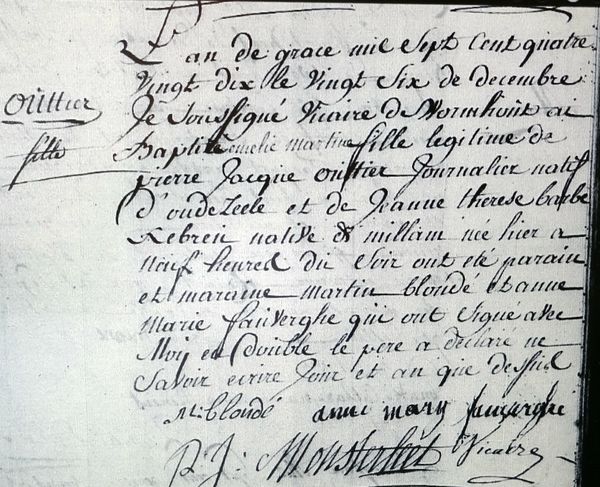 L'an de grace mil Sept Cent quatre
Vingt dix le Vingt Six de decembre
Je Soussigné Vicaire de Wormhout ai
Outtier
fille
Baptisé emelie martine fille legitime de
pierre Jacque Outtier Journalier natif
d'oudezeele et de Jeanne therese barbe
Kebrein native de millam née hier a
neuf heures du Soir ont eté parain
et maraine martin blondé et anne
Marie fauverghe qui ont Signé avec
Moi en double le pere a declaré ne
Savoir ecrire Jour et an que dessus
M: blondé anne mary fauverghe
P J: Vicaire